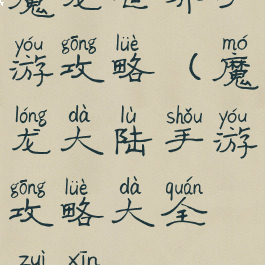 yóu gōng lüè mó
游攻略（魔
lóng dà lù shǒu yóu
龙大陆手游
gōng lüè dà quán
攻略大全
zuì xīn